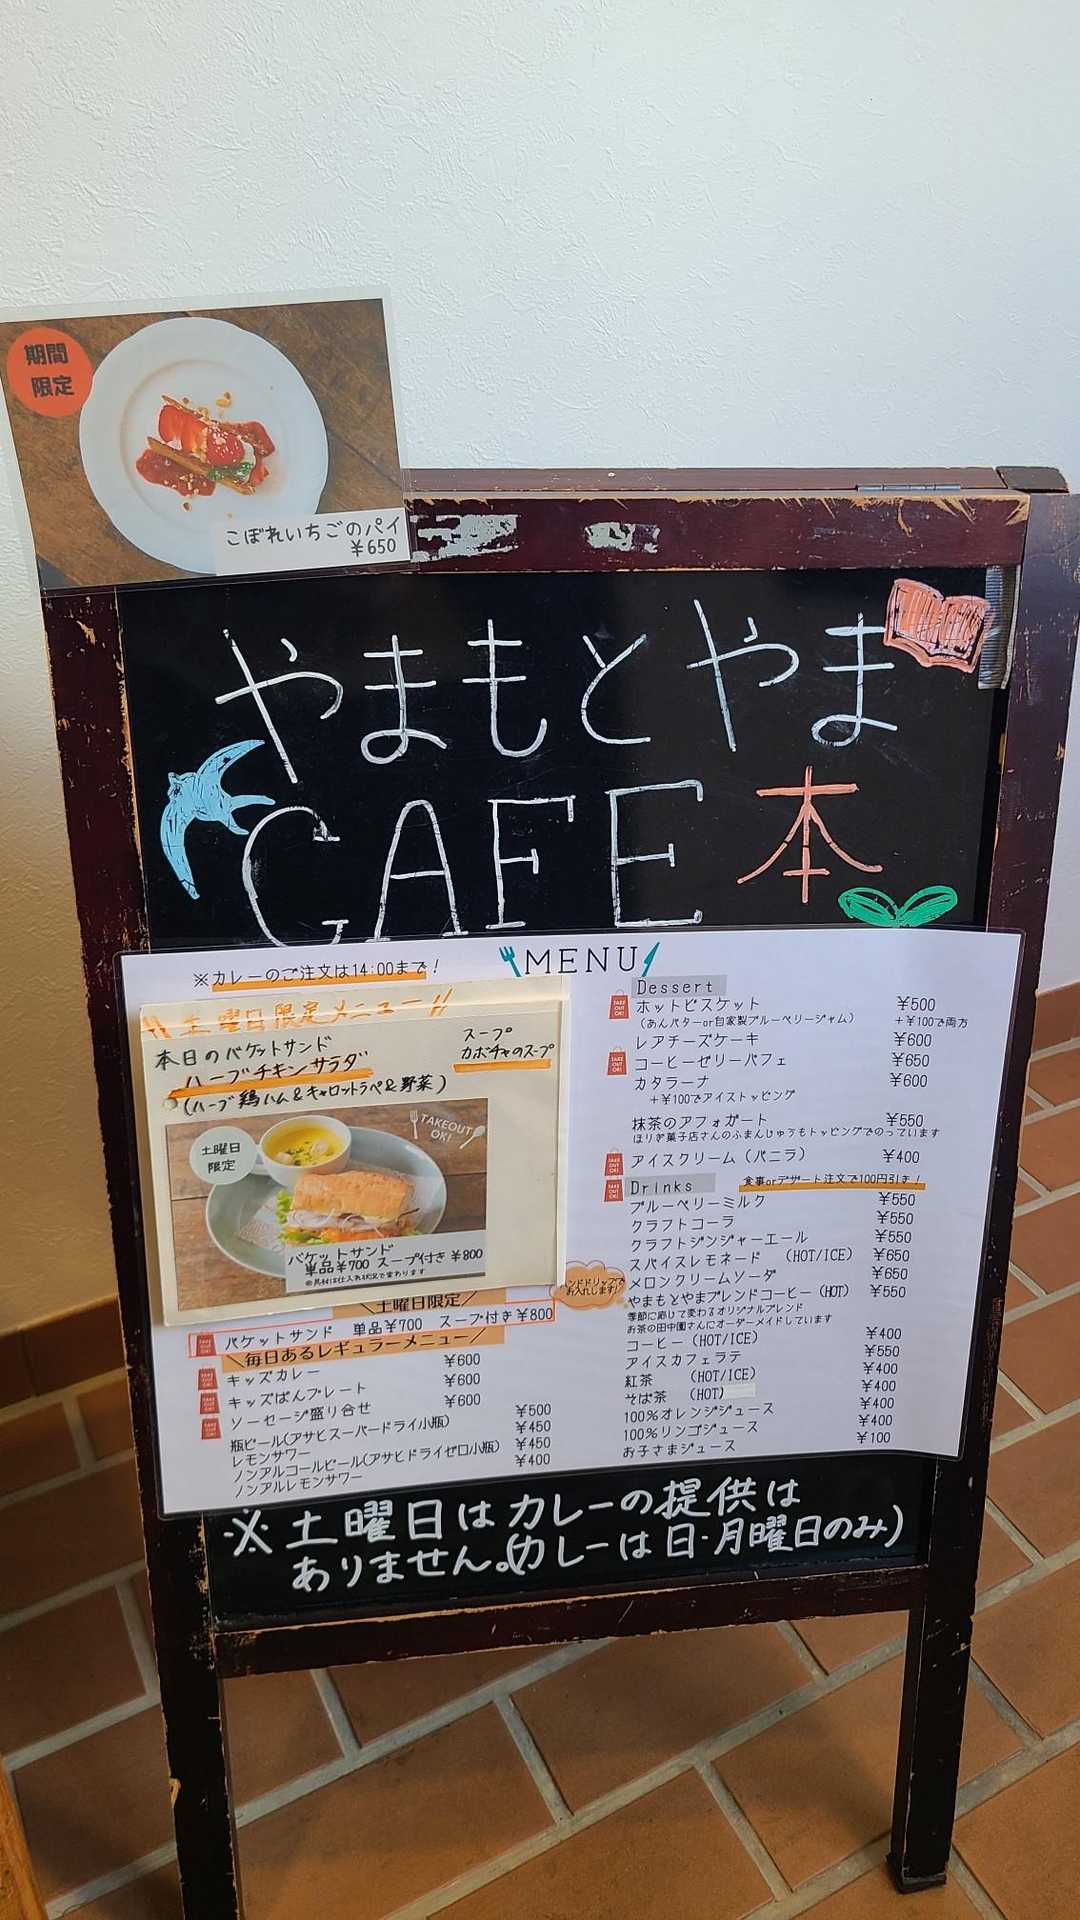 期間
限定
こぼれいちごのパイ
¥650
やまもとやま
CAFE 本
MENU
※カレーのご注文は14:00まで!
土曜日限定メニュー!!
本日のバケットサンド
ハーブチキンサラダ
(ハーブ鶏ハム&キャロットラペ&野菜)
スープ
カボチャのスープ
土曜日
限定
TAKEOUT
OK!
バケットサンド
単品¥700 スープ付き ¥800
※具材は仕入れ状況で変わります
\土曜日限定/
バケットサンド 単品¥700 スープ付き¥800
\毎日あるレギュラーメニュー/
キッズカレー ¥600
キッズぱんプレート ¥600
ソーセージ盛り合せ ¥600
瓶ビール(アサヒスーパードライ小瓶) ¥500
レモンサワー ¥450
ノンアルコールビール(アサヒドライゼロ小瓶) ¥450
ノンアルレモンサワー ¥400
Dessert
TAKE OUT OK!
ホットビスケット ¥500
(あんバターor自家製ブルーベリージャム) +¥100で両方
レアチーズケーキ ¥600
TAKE OUT OK!
コーヒーゼリーパフェ ¥650
カタラーナ ¥600
+¥100でアイストッピング
抹茶のアフォガート ¥550
ほりぎ菓子店さんのふまんじゅうもトッピングでのっています
TAKE OUT OK!
アイスクリーム(バニラ) ¥400
TAKE OUT OK!
Drinks 食事orデザート注文で100円引き!
ブルーベリーミルク ¥550
クラフトコーラ ¥550
クラフトジンジャーエール ¥550
スパイスレモネード (HOT/ICE) ¥650
メロンクリームソーダ ¥650
ハンドドリップで
お入れします!
やまもとやまブレンドコーヒー(HOT) ¥550
季節に応じて変わるオリジナルブレンド
お茶の田中園さんにオーダーメイドしています
コーヒー(HOT/ICE) ¥400
アイスカフェラテ ¥550
紅茶 (HOT/ICE) ¥400
そば茶 (HOT) ¥400
100%オレンジジュース ¥400
100%リンゴジュース ¥400
お子さまジュース ¥100
※土曜日はカレーの提供は
ありません。(カレーは日・月曜日のみ)